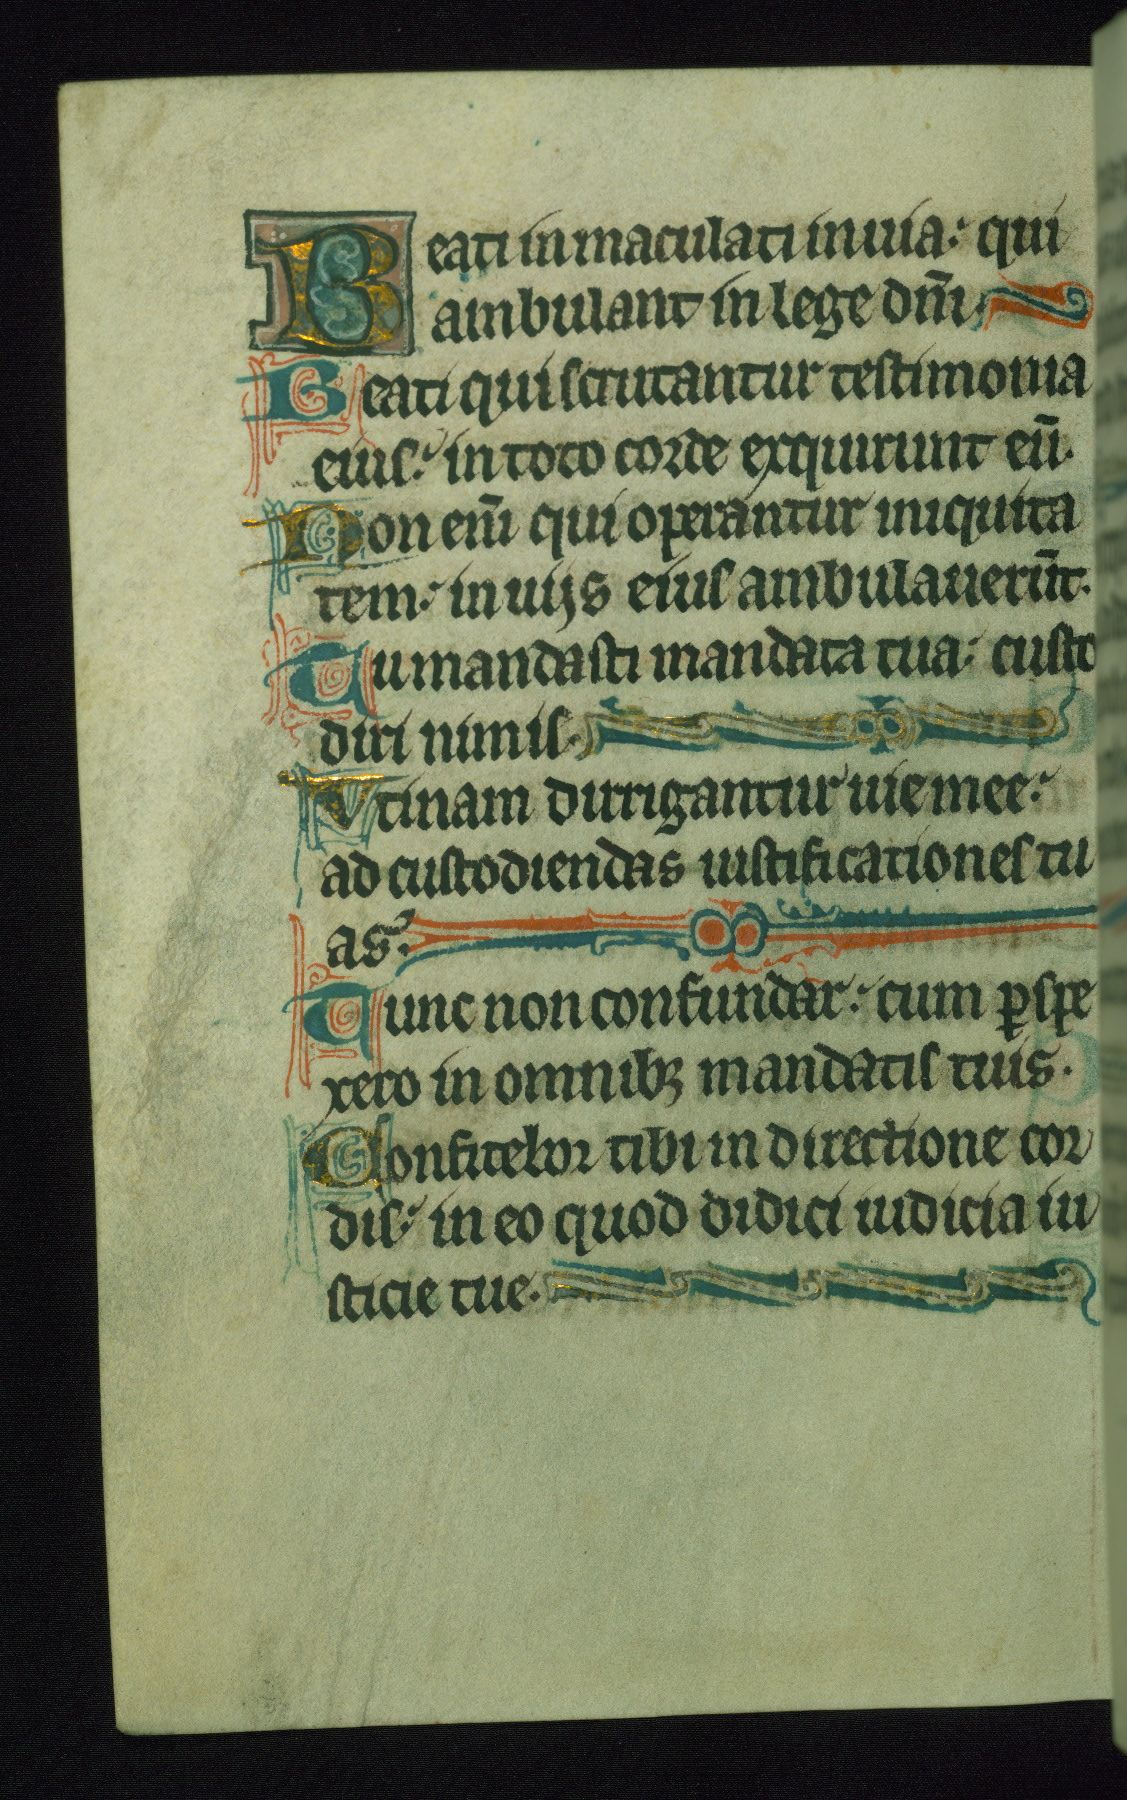 Beati inmaculati in uia: qui
ambulant in lege dñi.
Beati qui scrutantur testimonia
eius: in toto corde exquirunt eū.
Non eni̅ qui operantur iniquita
tem: in uijs eius ambulauerūt.
Tu mandasti mandata tua: custo
diri nimis.
Vtinam dirrigantur uie mee:
ad custodiendas iustificationes tu
as.
Tunc non confundar: cum ꝑspe
xero in omnibꝫ mandatis tuis.
Confitebor tibi in directione cor
dis: in eo quod didici iudicia iu
sticie tue.